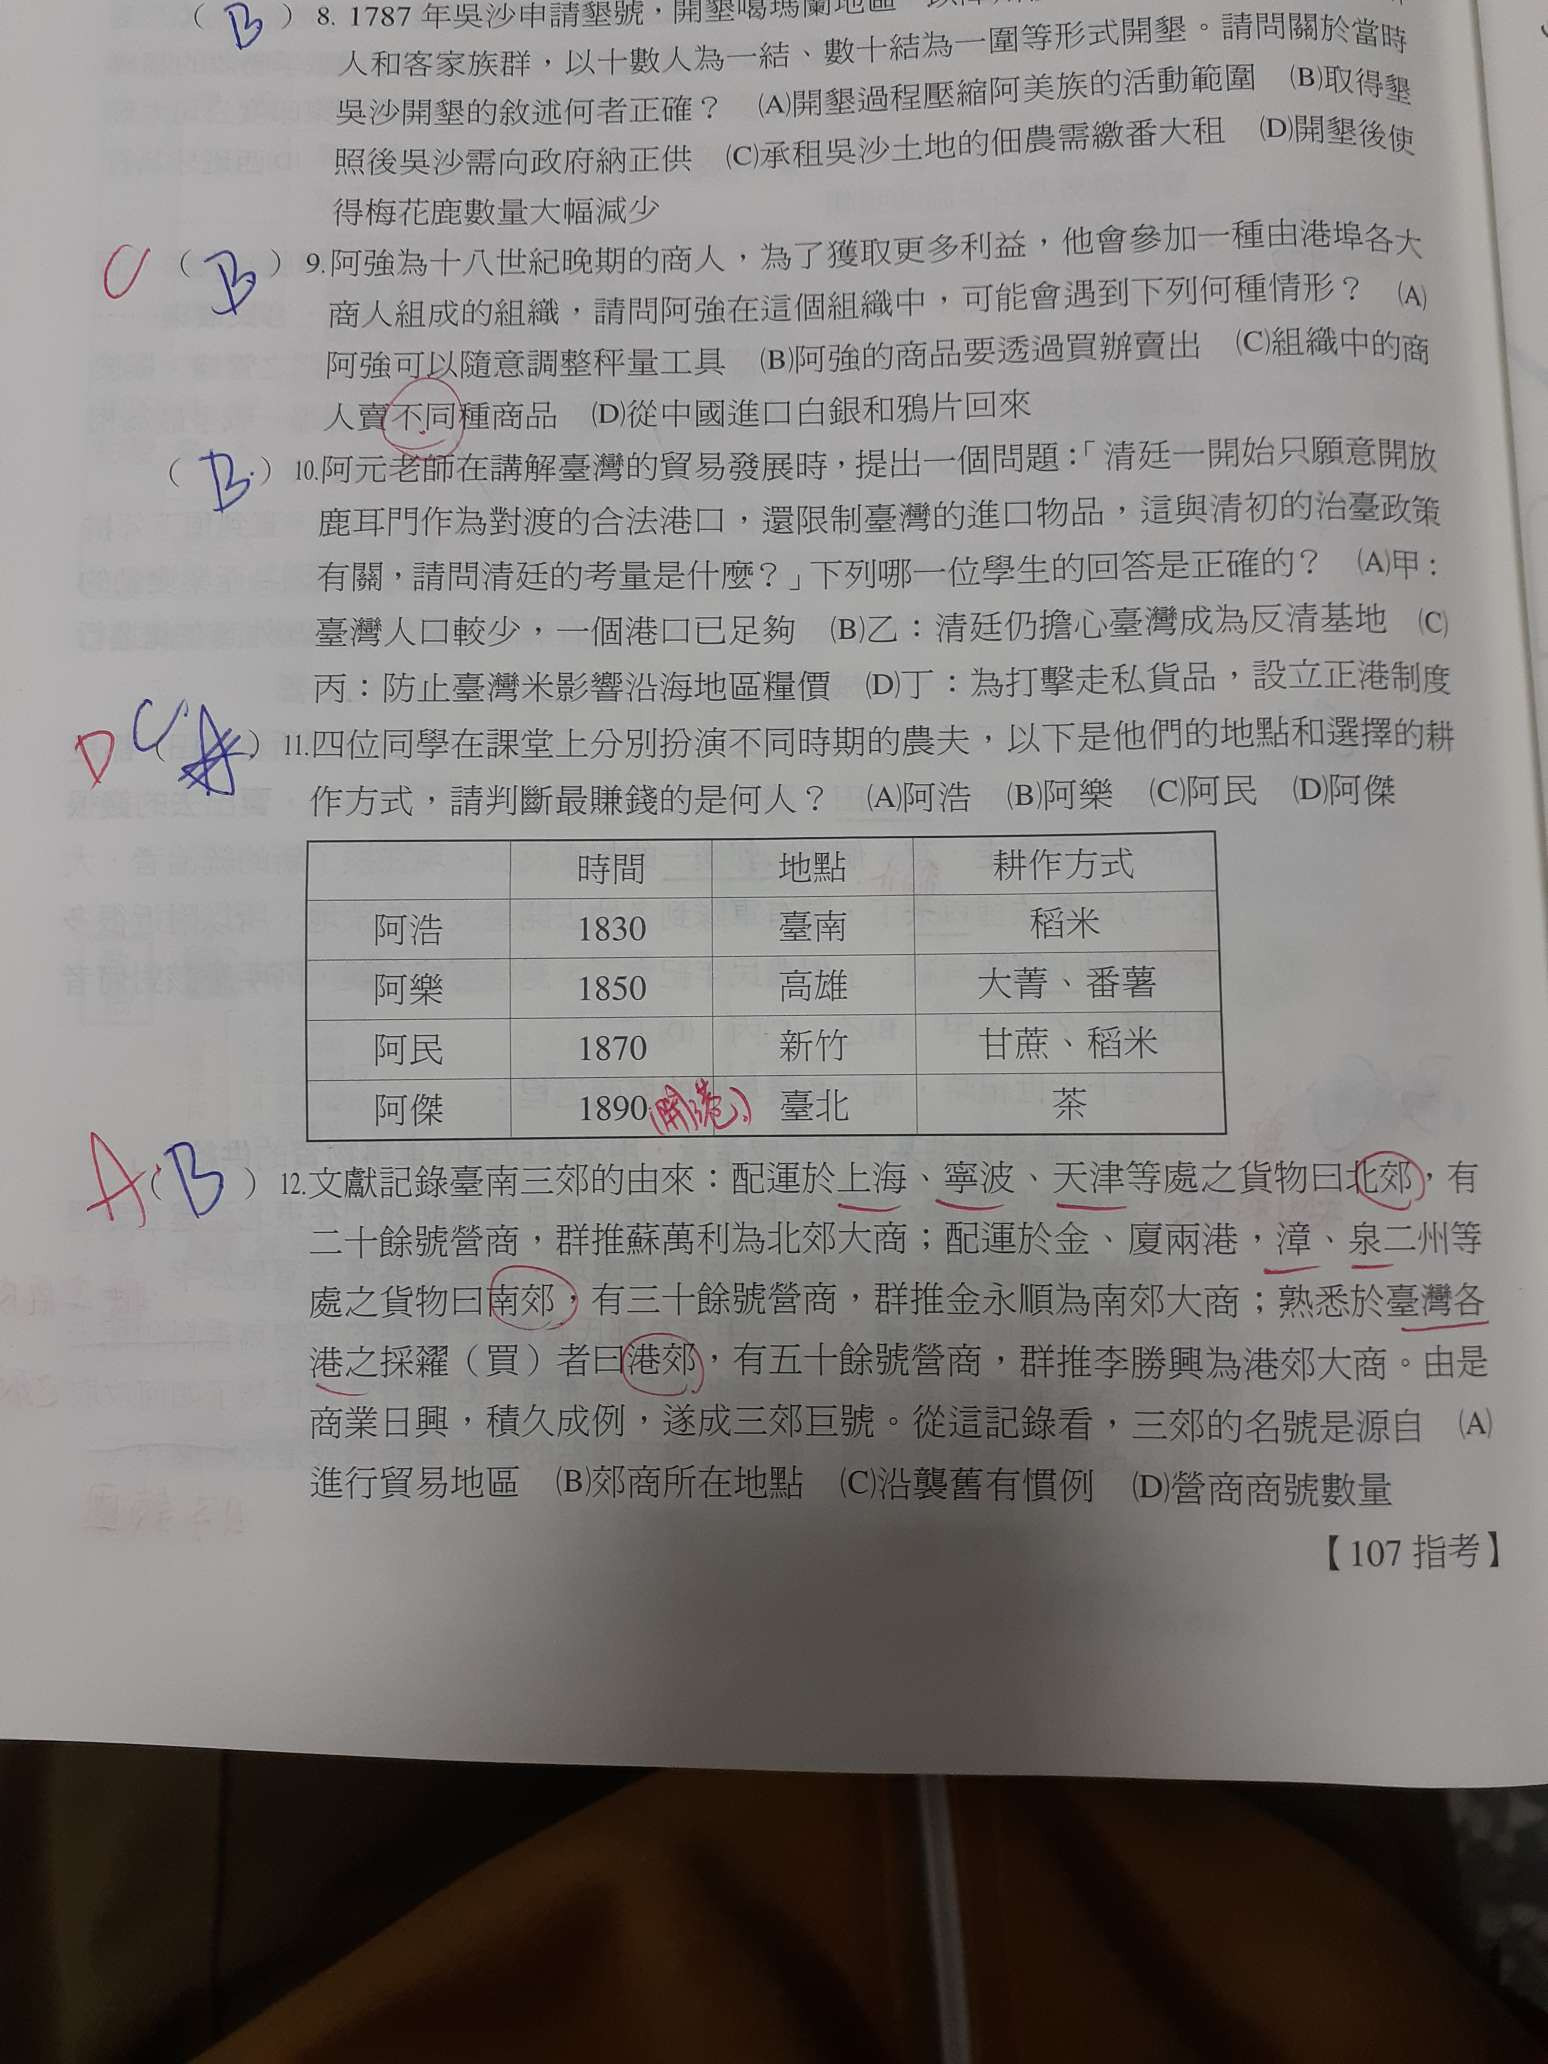 （ B ） 8. 1787 年吳沙申請墾號，開墾噶瑪蘭地區
人和客家族群，以十數人為一結、數十結為一圍等形式開墾。請問關於當時
吳沙開墾的敘述何者正確？ (A)開墾過程壓縮阿美族的活動範圍 (B)取得墾
照後吳沙需向政府納正供 (C)承租吳沙土地的佃農需繳番大租 (D)開墾後使
得梅花鹿數量大幅減少
C （ B ） 9.阿強為十八世紀晚期的商人，為了獲取更多利益，他會參加一種由港埠各大
商人組成的組織，請問阿強在這個組織中，可能會遇到下列何種情形？ (A)
阿強可以隨意調整秤量工具 (B)阿強的商品要透過買辦賣出 (C)組織中的商
人賣不同種商品 (D)從中國進口白銀和鴉片回來
（ B ） 10.阿元老師在講解臺灣的貿易發展時，提出一個問題：「清廷一開始只願意開放
鹿耳門作為對渡的合法港口，還限制臺灣的進口物品，這與清初的治臺政策
有關，請問清廷的考量是什麼？」下列哪一位學生的回答是正確的？ (A)甲：
臺灣人口較少，一個港口已足夠 (B)乙：清廷仍擔心臺灣成為反清基地 (C)
丙：防止臺灣米影響沿海地區糧價 (D)丁：為打擊走私貨品，設立正港制度
D C （ ） 11.四位同學在課堂上分別扮演不同時期的農夫，以下是他們的地點和選擇的耕
作方式，請判斷最賺錢的是何人？ (A)阿浩 (B)阿樂 (C)阿民 (D)阿傑
時間 地點 耕作方式
阿浩 1830 臺南 稻米
阿樂 1850 高雄 大菁、番薯
阿民 1870 新竹 甘蔗、稻米
阿傑 1890 (開港) 臺北 茶
A （ B ） 12.文獻記錄臺南三郊的由來：配運於上海、寧波、天津等處之貨物曰北郊，有
二十餘號營商，群推蘇萬利為北郊大商；配運於金、廈兩港，漳、泉二州等
處之貨物曰南郊，有三十餘號營商，群推金永順為南郊大商；熟悉於臺灣各
港之採糴（買）者曰港郊，有五十餘號營商，群推李勝興為港郊大商。由是
商業日興，積久成例，遂成三郊巨號。從這記錄看，三郊的名號是源自 (A)
進行貿易地區 (B)郊商所在地點 (C)沿襲舊有慣例 (D)營商商號數量
【107 指考】